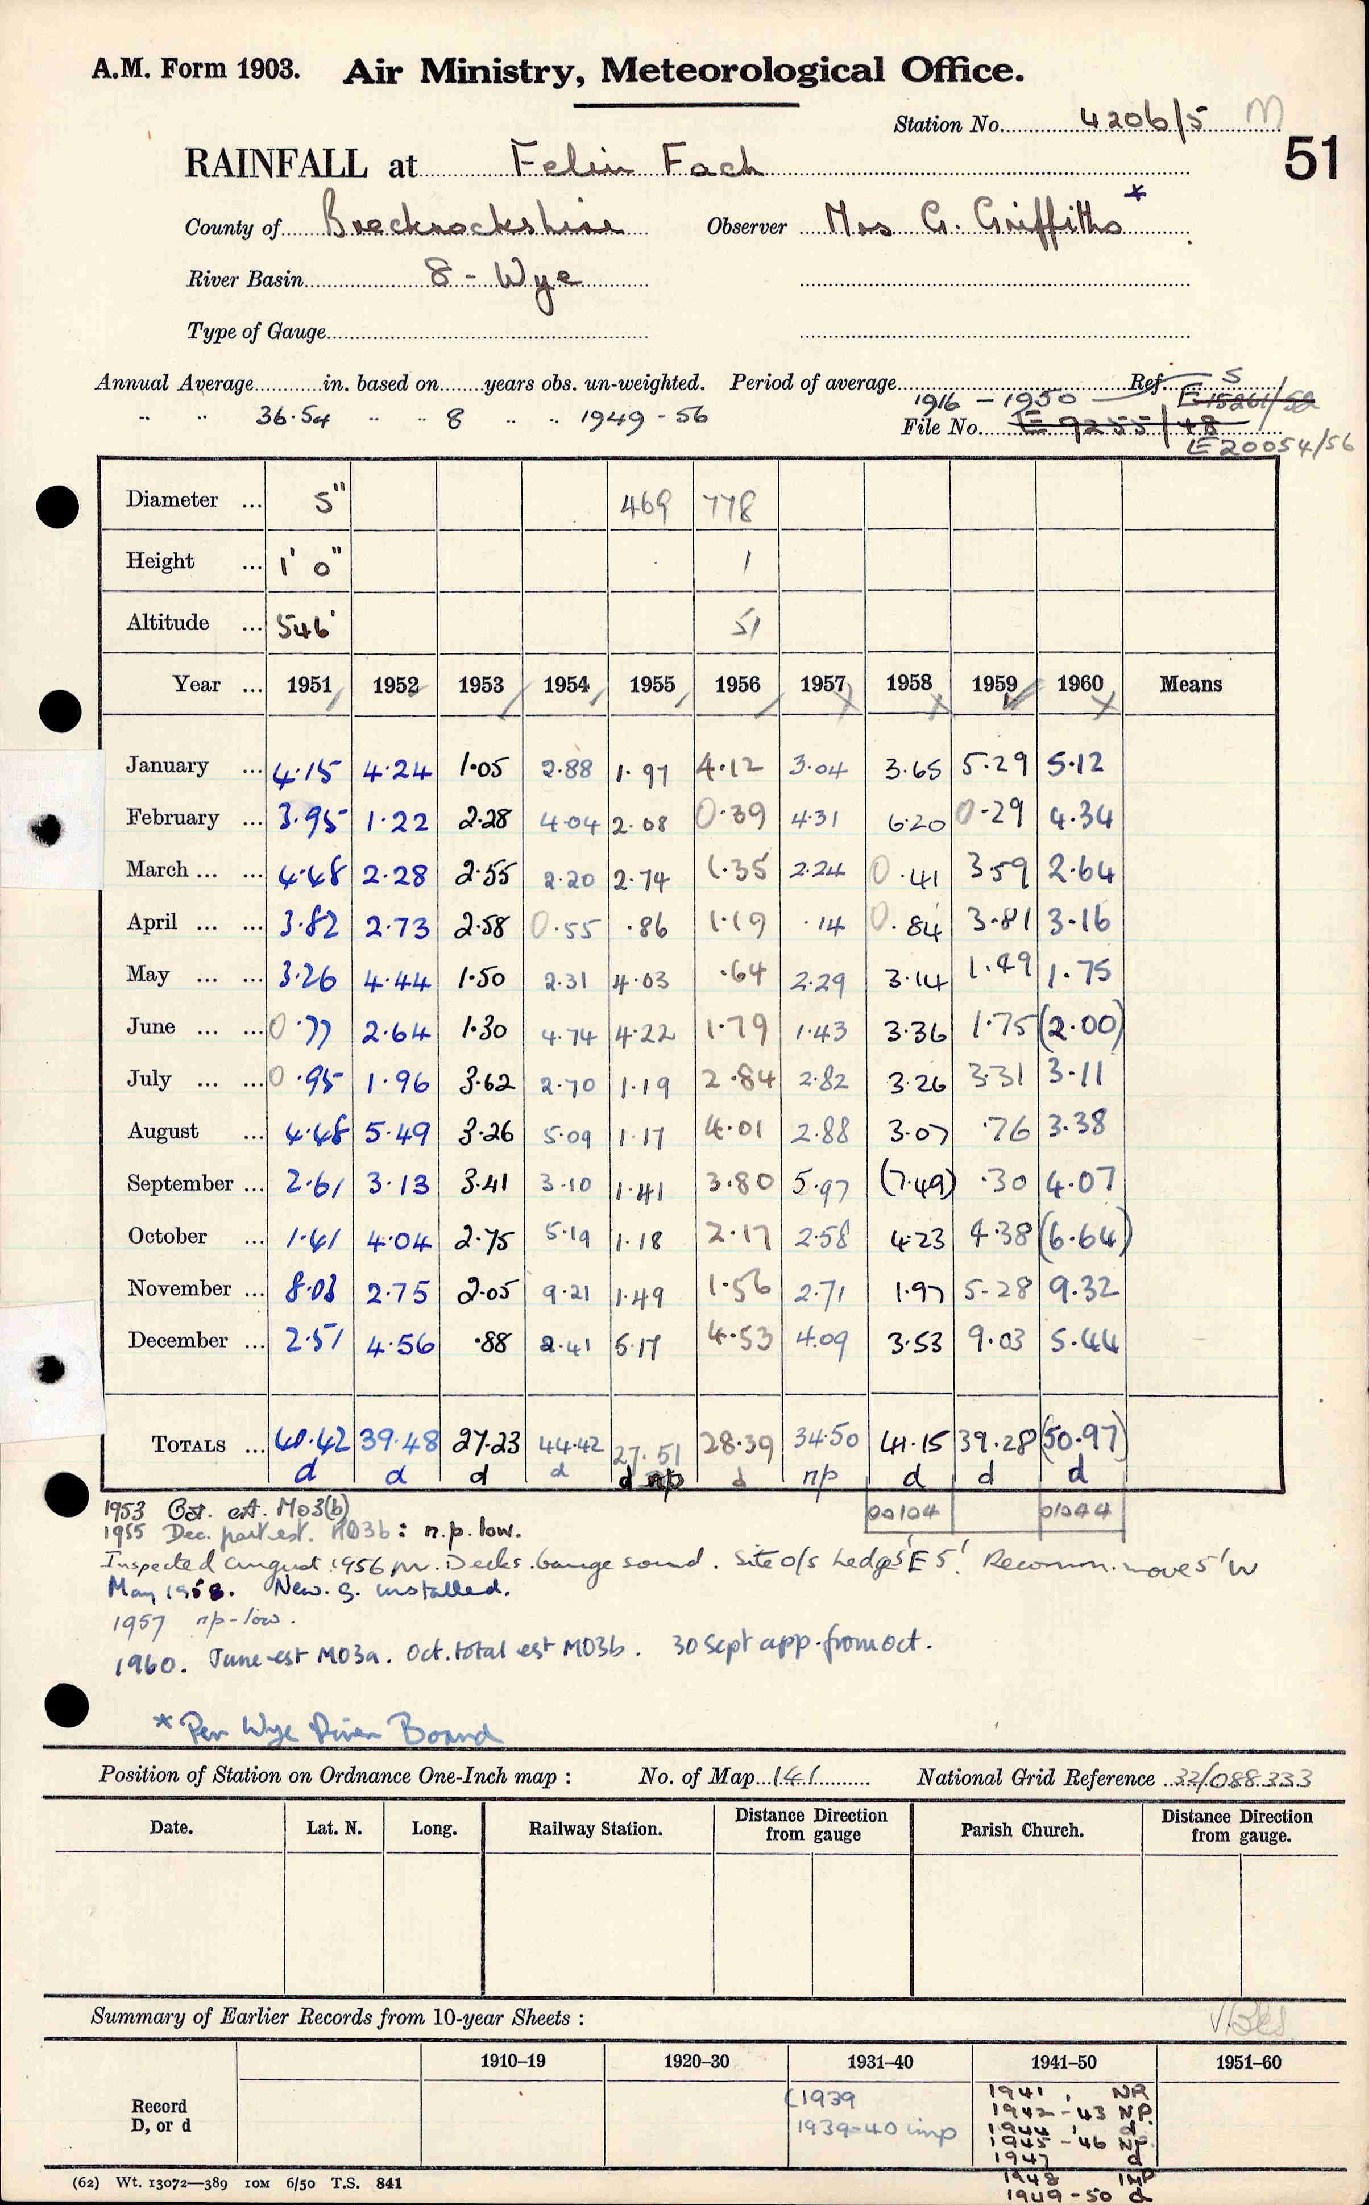 A.M. Form 1903. Air Ministry, Meteorological Office.
Station No. 4206/5 M
51
RAINFALL at Felin Fach
County of Brecknockshire Observer Mrs G. Griffiths *
River Basin 8 - Wye
Type of Gauge
Annual Average in. based on years obs. un-weighted. Period of average 1916 - 1950 Ref. S
E 15261/52
" " 36.54 " " 8 " " 1949 - 56 File No. E 9255/48
E 20054/56
Diameter ... 5" 469 778
Height ... 1' 0" 1
Altitude ... 546' 51
Year ... 1951 1952 1953 1954 1955 1956 1957 1958 1959 1960 Means
January ... 4.15 4.24 1.05 2.88 1.97 4.12 3.04 3.65 5.29 5.12
February ... 3.95 1.22 2.28 4.04 2.08 0.39 4.31 6.20 0.29 4.34
March ... ... 4.48 2.28 2.55 2.20 2.74 1.35 2.24 0.41 3.59 2.64
April ... ... 3.82 2.73 2.58 0.55 .86 1.19 .14 0.84 3.81 3.16
May ... ... 3.26 4.44 1.50 2.31 4.03 .64 2.29 3.14 1.49 1.75
June ... ... 0.77 2.64 1.30 4.74 4.22 1.79 1.43 3.36 1.75 (2.00)
July ... ... 0.95 1.96 3.62 2.70 1.19 2.84 2.82 3.26 3.31 3.11
August ... 4.48 5.49 3.26 5.09 1.17 4.01 2.88 3.07 .76 3.38
September ... 2.61 3.13 3.41 3.10 1.41 3.80 5.97 (7.49) .30 4.07
October ... 1.41 4.04 2.75 5.19 1.18 2.17 2.58 4.23 4.38 (6.64)
November ... 8.03 2.75 2.05 9.21 1.49 1.56 2.71 1.97 5.28 9.32
December ... 2.51 4.56 .88 2.41 5.17 4.53 4.09 3.53 9.03 5.44
TOTALS ... 40.42 39.48 27.23 44.42 27.51 28.39 34.50 41.15 39.28 (50.97)
d d d d d np d np d d d
00104 01044
1953 Oct. est. M03(b)
1955 Dec. part est. M03b : n.p. low.
Inspected August 1956 Mr. Decks. Gauge sound. Site o/s hedge 'E 5'. Recomm. move 5' W
May 1958. New. g. installed.
1957 np - low.
1960. June est M03a. Oct. total est M03b. 30 Sept app. from Oct.
* Per Wye River Board
Position of Station on Ordnance One-Inch map : No. of Map 141 National Grid Reference 32/088333
Date. Lat. N. Long. Railway Station. Distance Direction from gauge Parish Church. Distance Direction from gauge.
Summary of Earlier Records from 10-year Sheets :
1910–19 1920–30 1931–40 1941–50 1951–60
Record
D, or d
(1939
1939-40 imp
1941 . NR
1942 - 43 NP
1944 d.
1945 - 46 NP
1947 d
1948 IMP
1949 - 50 d
(62) Wt. 13072—389 10M 6/50 T.S. 841